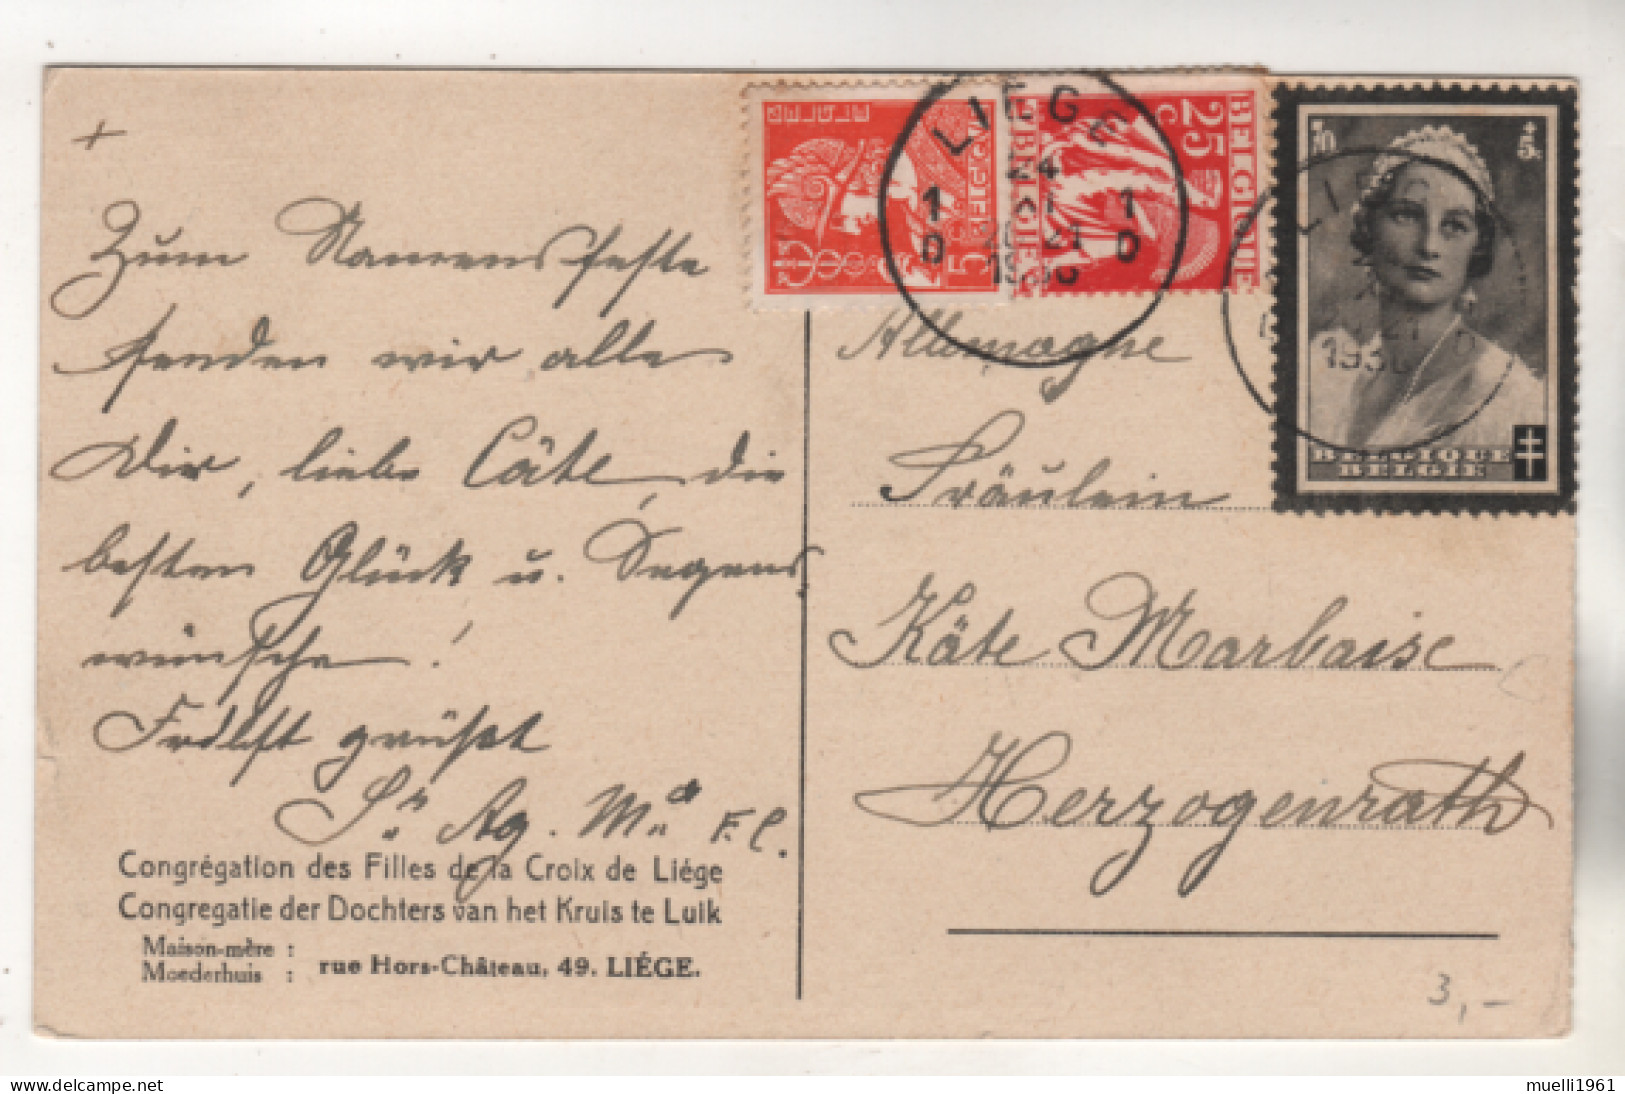 +
Zum Namensfeste
senden wir alle
Dir, liebe Cäte, die
besten Glück u. Segens
wünsche!
grüßt
Sr. Ag. M. F. C.
Congrégation des Filles de la Croix de Liége
Congregatie der Dochters van het Kruis te Luik
Maison-mère :
Moederhuis :
rue Hors-Château, 49. LIÉGE.
BELGIE
5 C
BELGIQUE
25 C
BELGIQUE
BELGIE
LIEGE
24
XI
1 1
D D
20-21
1936
70 +5c
LIEGE
21
1936
BELGIQUE
BELGIE
Allemagne
Fräulein
Käte Marbaise
Herzogenrath
3,-
muelli1961